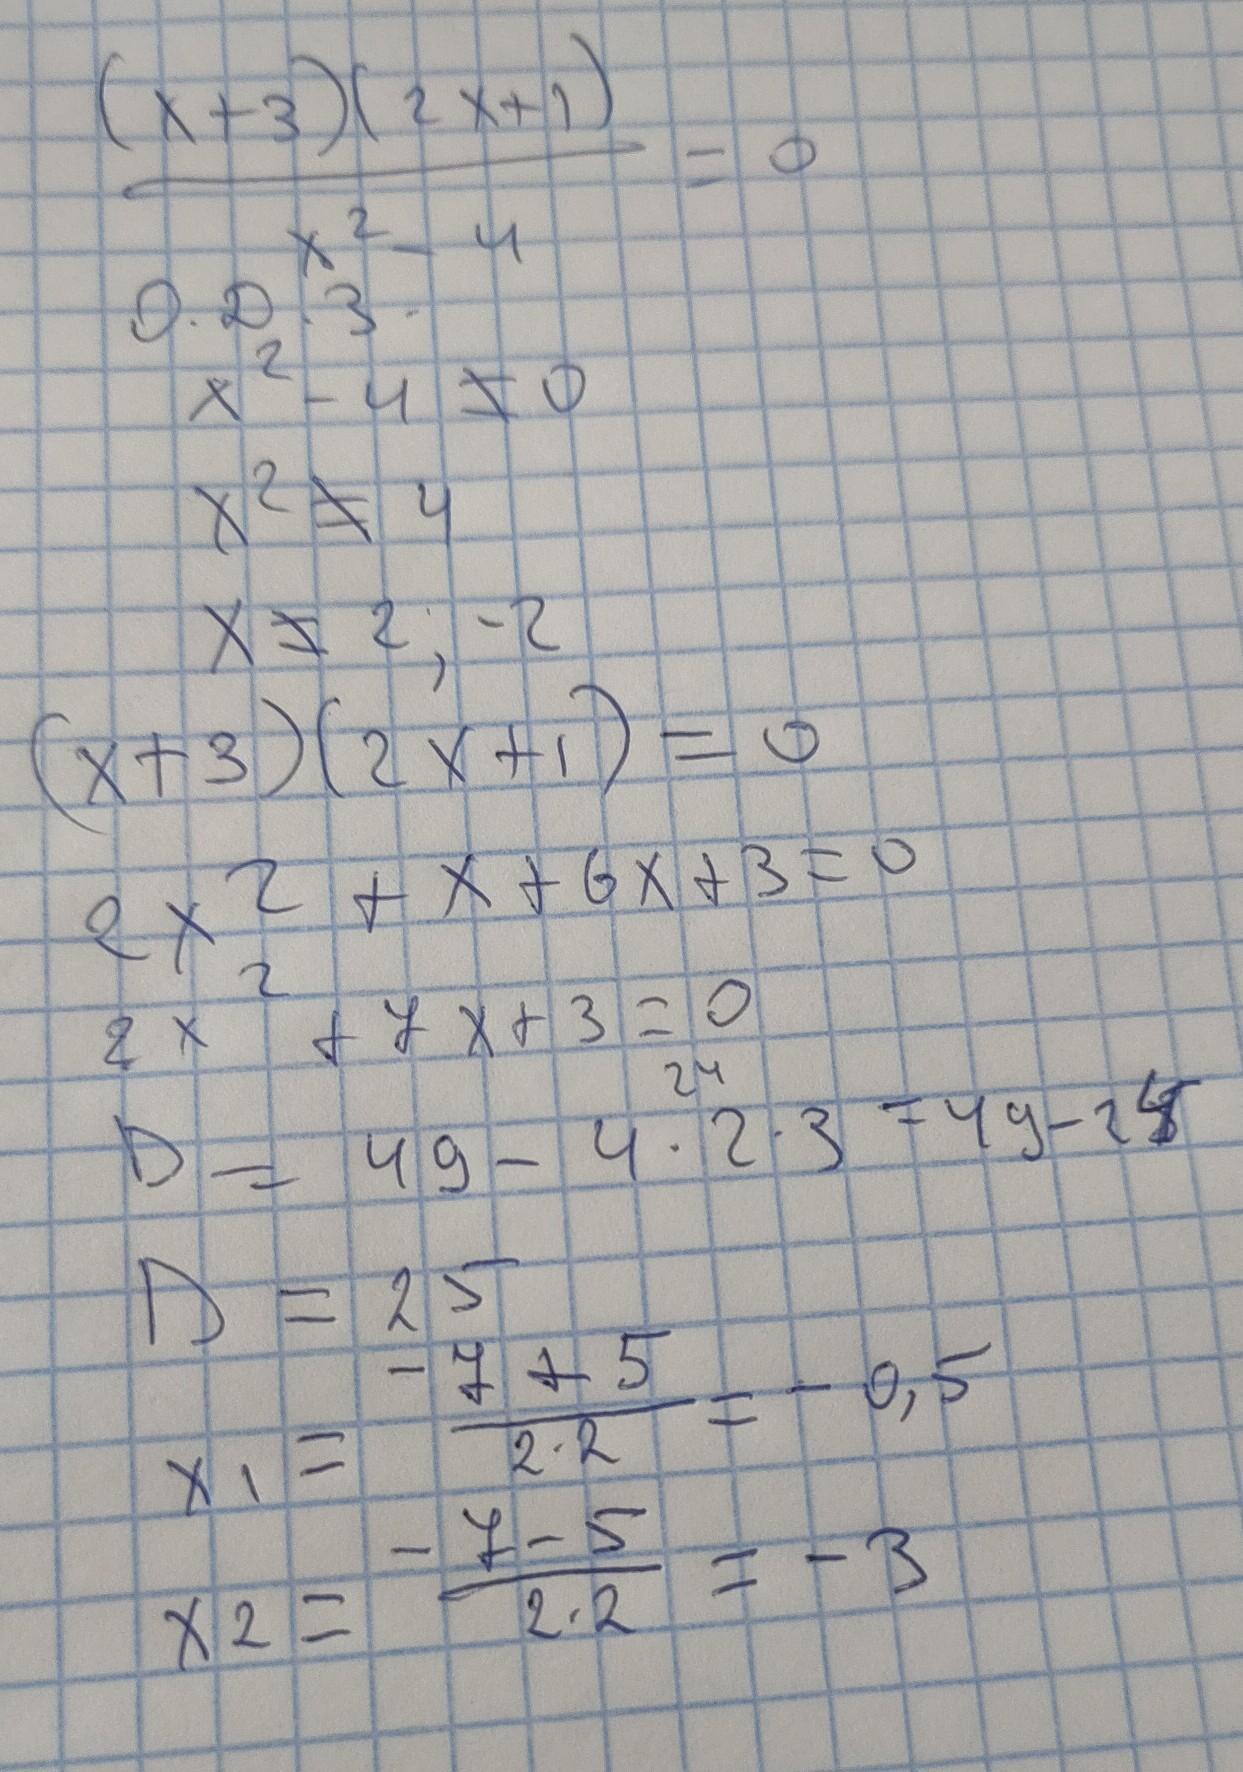 (x+3)(2x+1)
= 0
x² - 4
О.D.З.
x² - 4 ≠ 0
x² ≠ 4
x ≠ 2; -2
(x+3)(2x+1) = 0
2x² + x + 6x + 3 = 0
2x² + 7x + 3 = 0
24
D = 49 - 4 · 2 · 3 = 49 - 24
D = 25
x1 = (-7 + 5)/(2·2) = - 0,5
x2 = (-7 - 5)/(2·2) = - 3